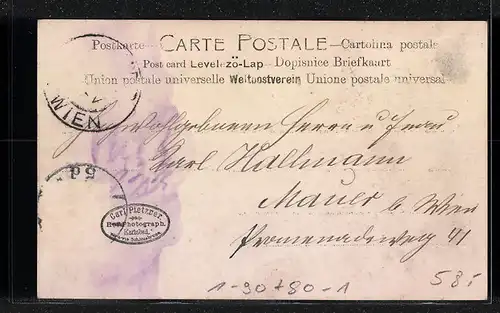 Postkarte — CARTE POSTALE — Cartolina postale
Post card Levelező-Lap — Dopisnice Briefkaart
Union postale universelle Weltpostverein Unione postale universale
WIEN
Hochwohlgeboren Herrn u Frau
Karl Hallmann
Mauer b. Wien
Promenadeweg 41
Carl Pietzner
Hof Photograph.
Karlsbad.
1-90+80-1
58:-